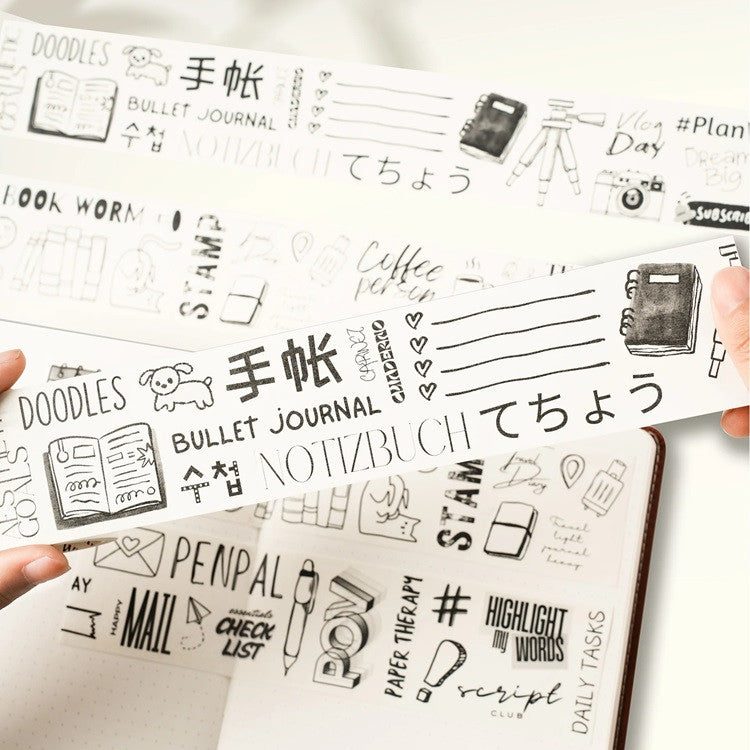 DOODLES
手帳
BULLET JOURNAL
수첩
NOTIZBUCH
てちょう
Vlog
Day
#Plan
Dream
Big
SUBSCRIB
BOOK WORM
STAMP
Coffee
person
DOODLES
手帳
CUADERNO
BULLET JOURNAL
수첩
NOTIZBUCH
てちょう
GOALS
STAMP
Travel
Diary
Travel
light,
journal
heavy
PENPAL
AY
HAPPY
MAIL
essentials
CHECK
LIST
POV
PAPER THERAPY
#
HIGHLIGHT
my
WORDS
script
CLUB
DAILY TASKS